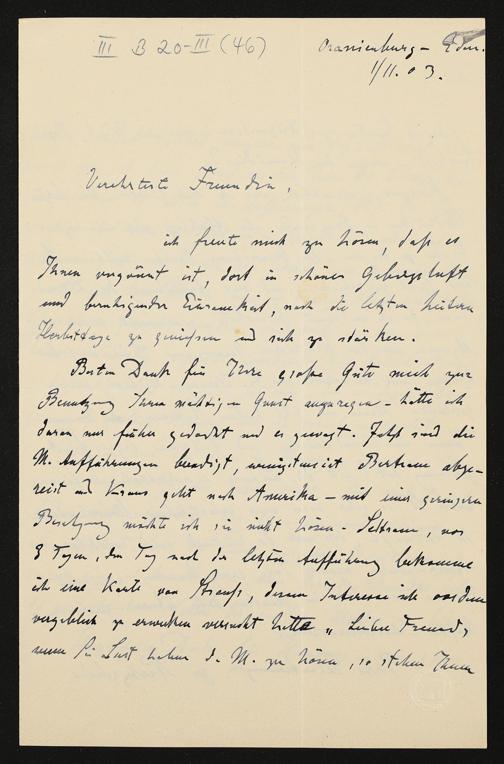 III B 20-III (46)
Oranienburg-Eden.
1/11.03.
Verehrteste Freundin,
ich freute mich zu hören, daß es
Ihnen vergönnt ist, dort in schöner Gebirgsluft
und beruhigender Einsamkeit, noch die letzten heitern
Herbsttage zu geniessen und sich zu stärken.
Besten Dank für Ihre große Güte mich zur
Benutzung Ihrer mächtigen Gunst anzuregen - hätte ich
daran nur früher gedacht und es gewagt. Jetzt sind die
M. Aufführungen beendigt, wenigstens ist Bertram abge-
reist und Kraus geht nach Amerika - mit einer geringeren
Besetzung möchte ich sie nicht hören - Seltsam, vor
3 Tagen, den Tag nach der letzten Aufführung bekomme
ich eine Karte von Strauß, dessen Interesse ich vordem
vergeblich zu erwecken versucht hatte „Lieber Freund,
wenn Sie Lust haben d. M. zu hören, so stehen Ihnen